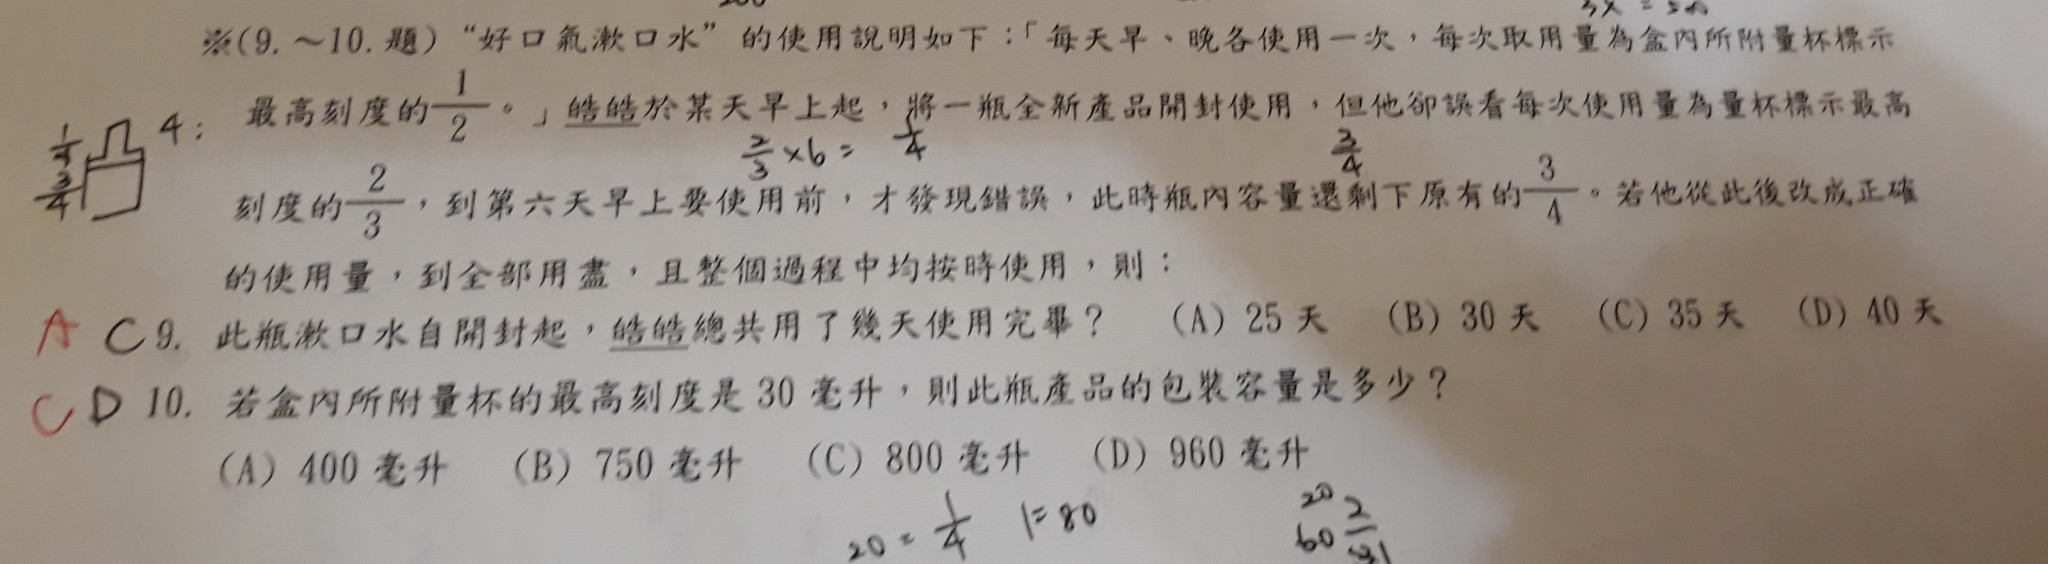 ※(9.～10.題)“好口氣漱口水”的使用說明如下：「每天早、晚各使用一次，每次取用量為盒內所附量杯標示
最高刻度的1/2。」皓皓於某天早上起，將一瓶全新產品開封使用，但他卻誤看每次使用量為量杯標示最高
4：
1/4
3/4
2/3×6= 1/4
3/4
刻度的2/3，到第六天早上要使用前，才發現錯誤，此時瓶內容量還剩下原有的3/4。若他從此後改成正確
的使用量，到全部用盡，且整個過程中均按時使用，則：
A C 9. 此瓶漱口水自開封起，皓皓總共用了幾天使用完畢？ (A) 25 天 (B) 30 天 (C) 35 天 (D) 40 天
C D 10. 若盒內所附量杯的最高刻度是 30 毫升，則此瓶產品的包裝容量是多少？
(A) 400 毫升 (B) 750 毫升 (C) 800 毫升 (D) 960 毫升
20=1/4 1=80
20 2
60